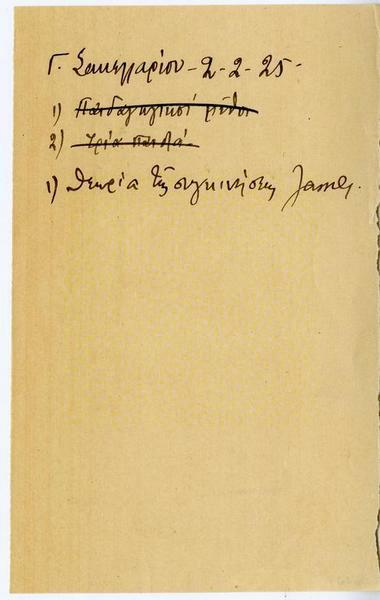 Γ. Σακελλαρίου - 2-2-25-
1) Παιδαγωγικοί μῦθοι
2) Τρία παιδιά.
1) Θεωρία τῆς συγκινήσεως James.